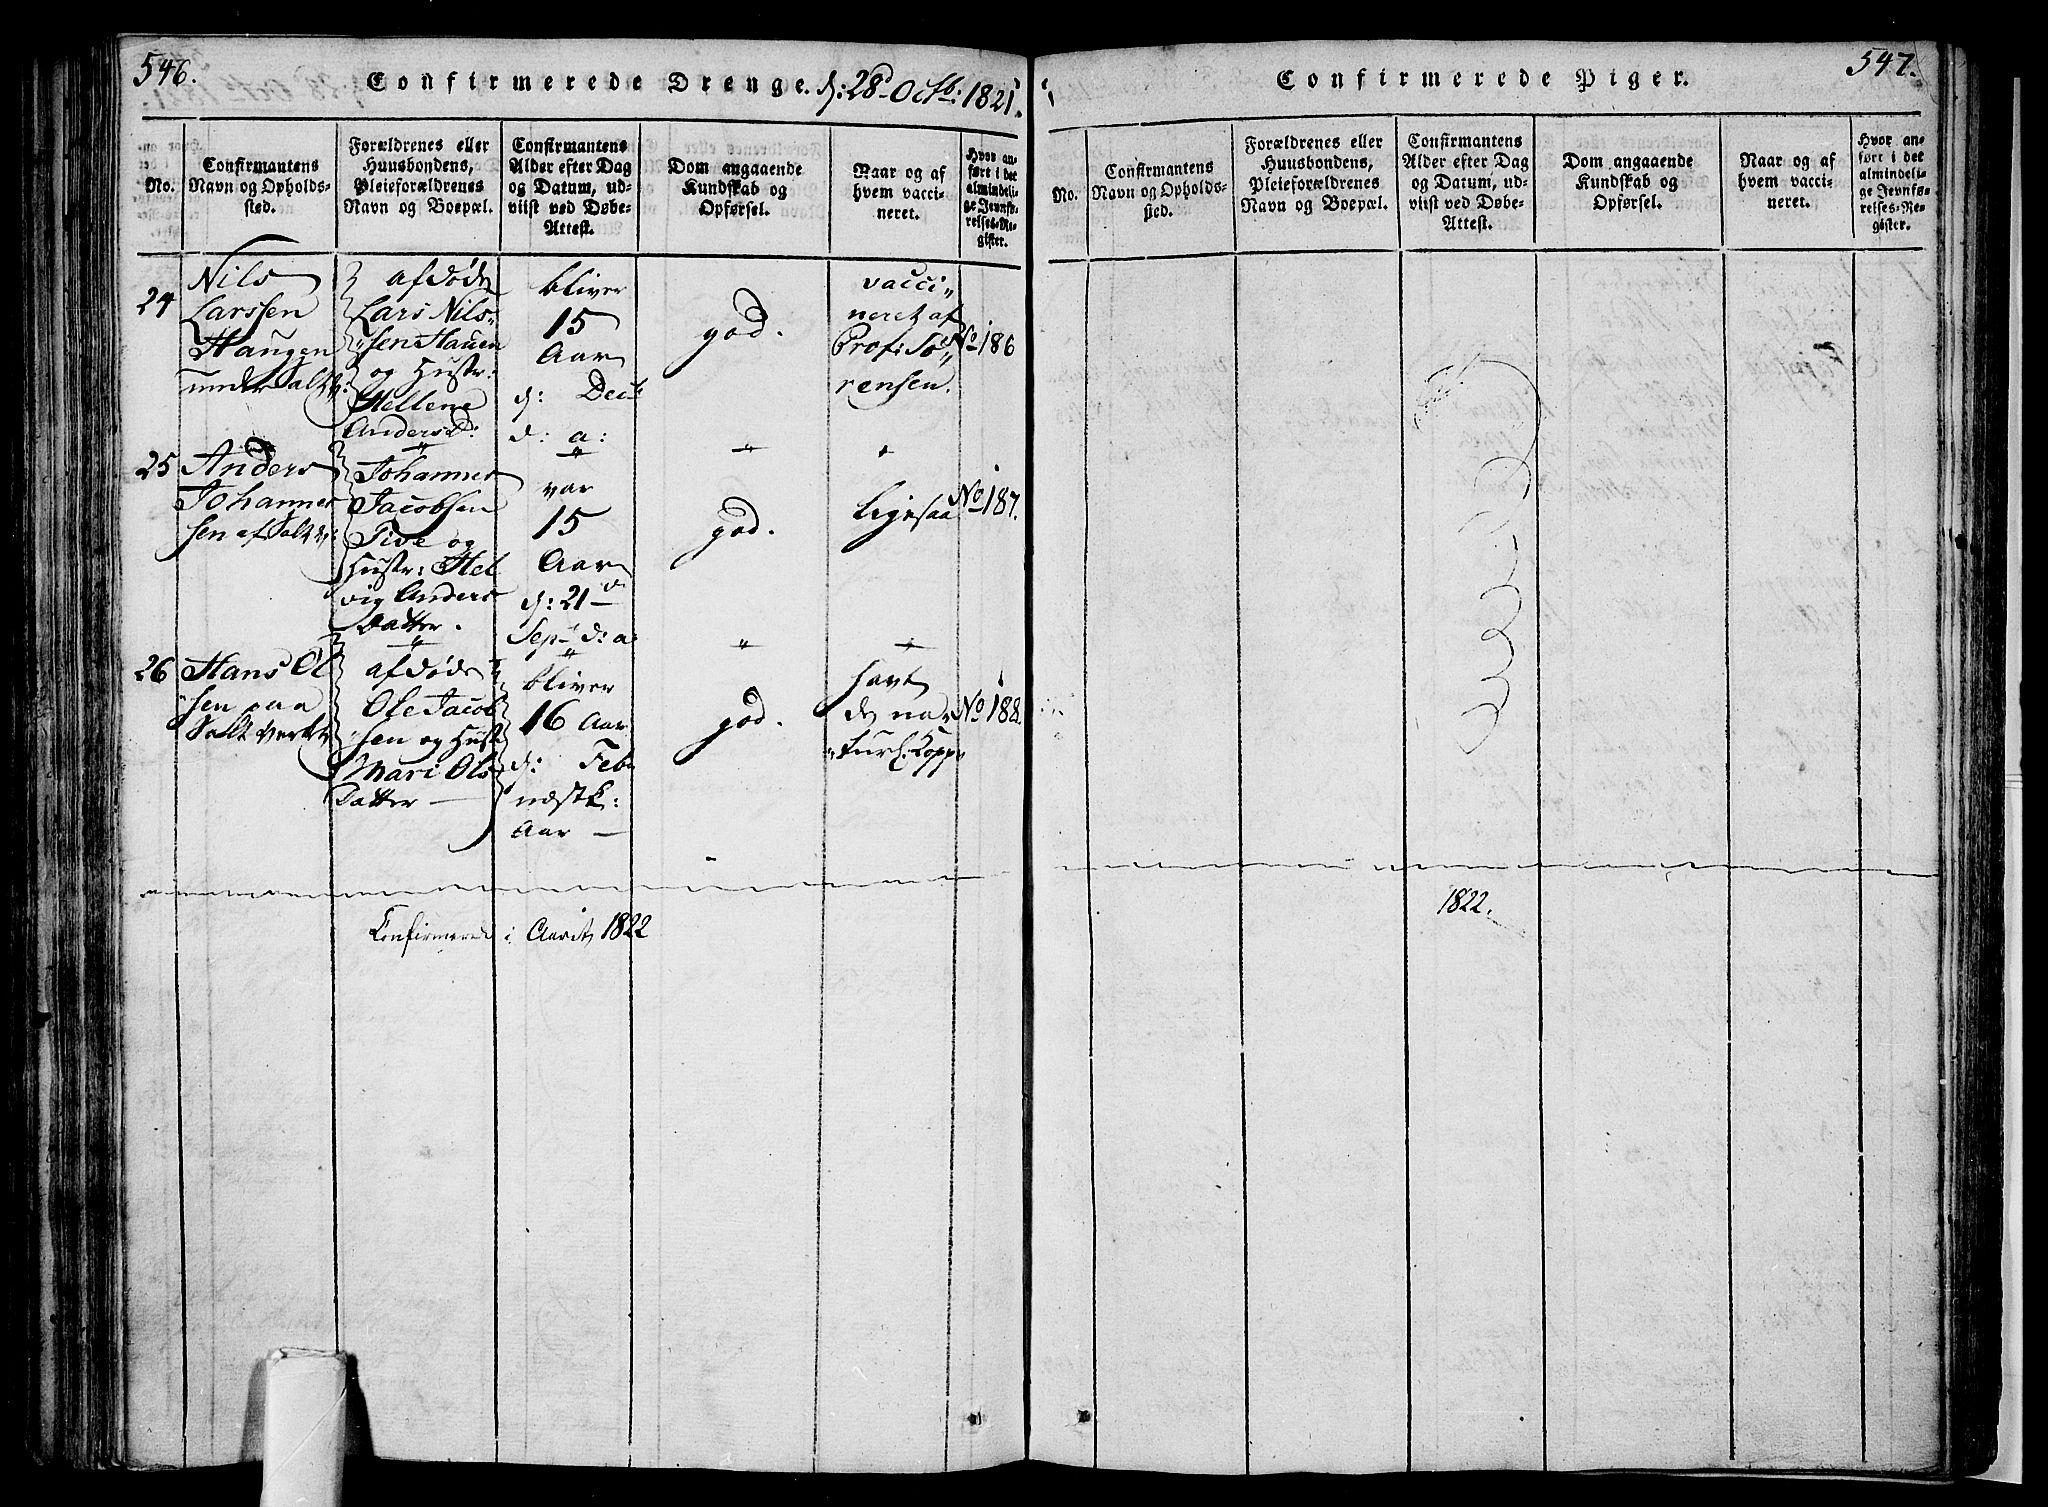 546.
Confirmerede Drenge. d: 28d Octb: 1821.
No.
Confirmantens
Navn og Opholds-
sted.
Forældrenes eller
Huusbondens,
Pleieforældrenes
Navn og Boepæl.
Confirmantens
Alder efter Dag
og Datum, ud-
viist ved Døbe-
Attest.
Dom angaaende
Kundskab og
Opførsel.
Naar og af
hvem vacci-
neret.
Hvor an-
ført i det
almindeli-
ge Jevnfø-
relses-Re-
gister.
24
Nils
Larssen
Haugen
under
afdøde
Lars Nils-
sen Hauen
og Hustr:
Hellene
Anders D:
bliver
15
Aar
d: Decb
d: a:
god.
vacci-
neret af
Prof: Sö-
rensen.
No 186
25
Anders
Johannes
sen af
Johannes
Jacobsen
Tive og
Hustr: Hel
vig Anders
Datter.
var
15
Aar
d: 21d
Sept d: a:
god.
Ligesaa
No 187.
26
Hans Ol
sen paa
Saltverket
afdøde
Ole Jacob
sen og Hust
Mari Ols
Datter —
bliver
16 Aar
d: Feb
næstk:
Aar —
god.
havt
de na
turl: Kopp
No 188.
Confirmerede i Aaret 1822
547.
Confirmerede Piger.
No.
Confirmantens
Navn og Opholds-
sted.
Forældrenes eller
Huusbondens,
Pleieforældrenes
Navn og Boepæl.
Confirmantens
Alder efter Dag
og Datum, ud-
viist ved Døbe-
Attest.
Dom angaaende
Kundskab og
Opførsel.
Naar og af
hvem vacci-
neret.
Hvor an-
ført i det
almindeli-
ge Jevnfø-
relses-Re-
gister.
1822.